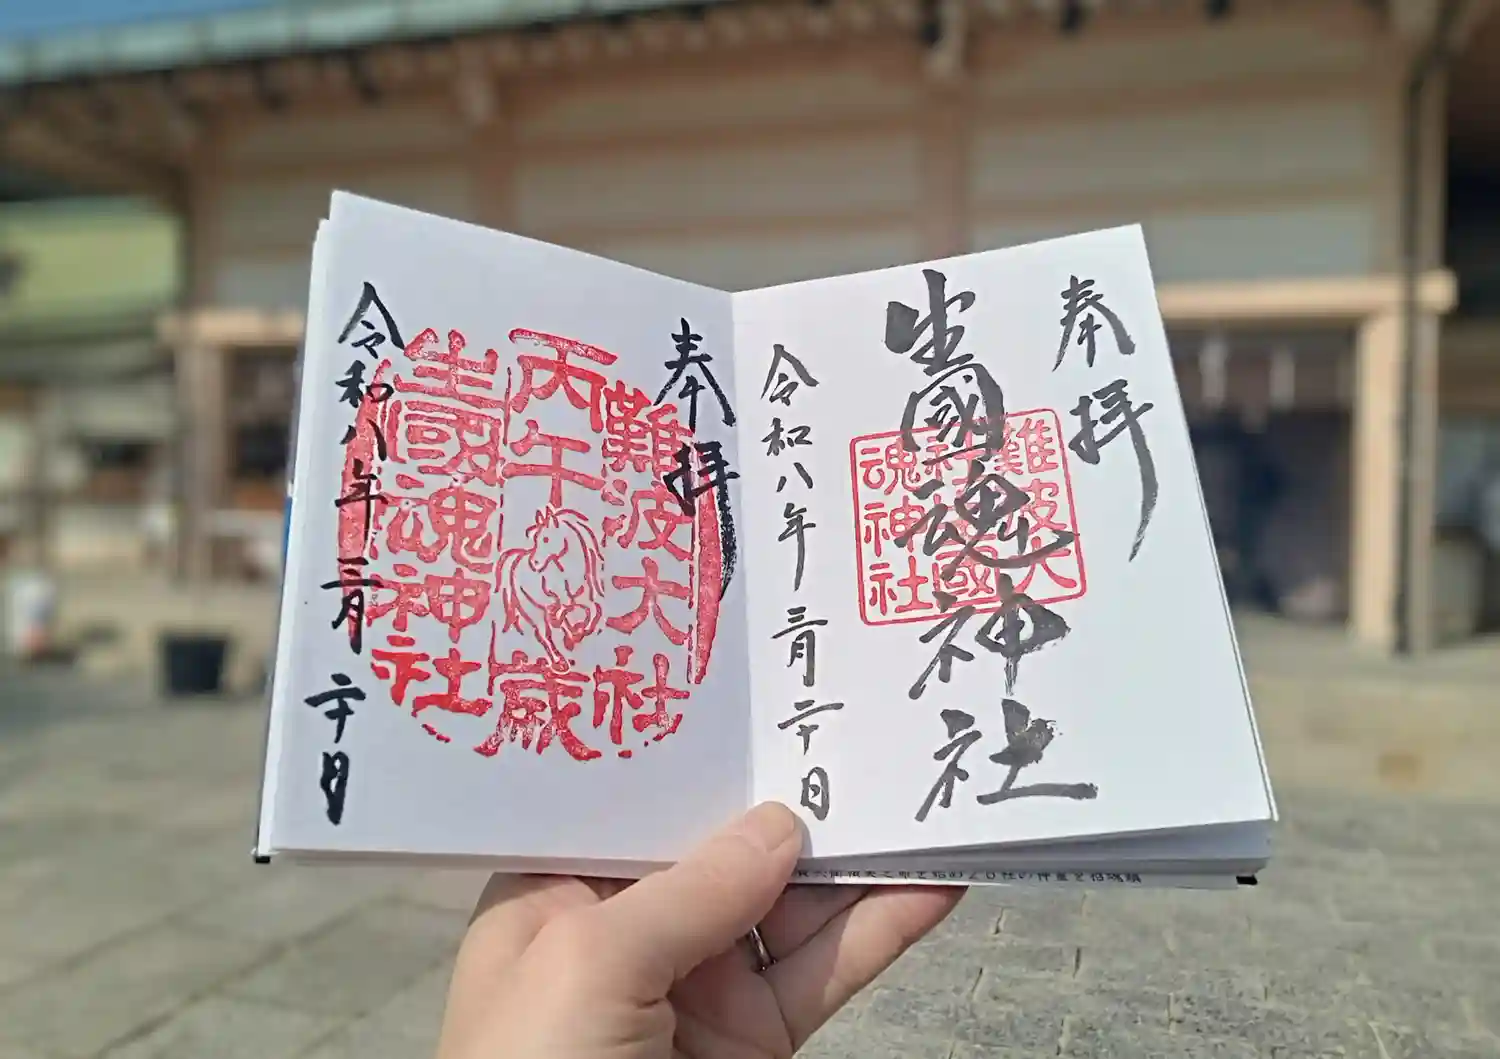 奉拝
生國魂神社
難波大社
生國
魂神社
令和八年三月二十日
奉拝
難波大社
丙午歳
生國魂神社
令和八年三月二十日